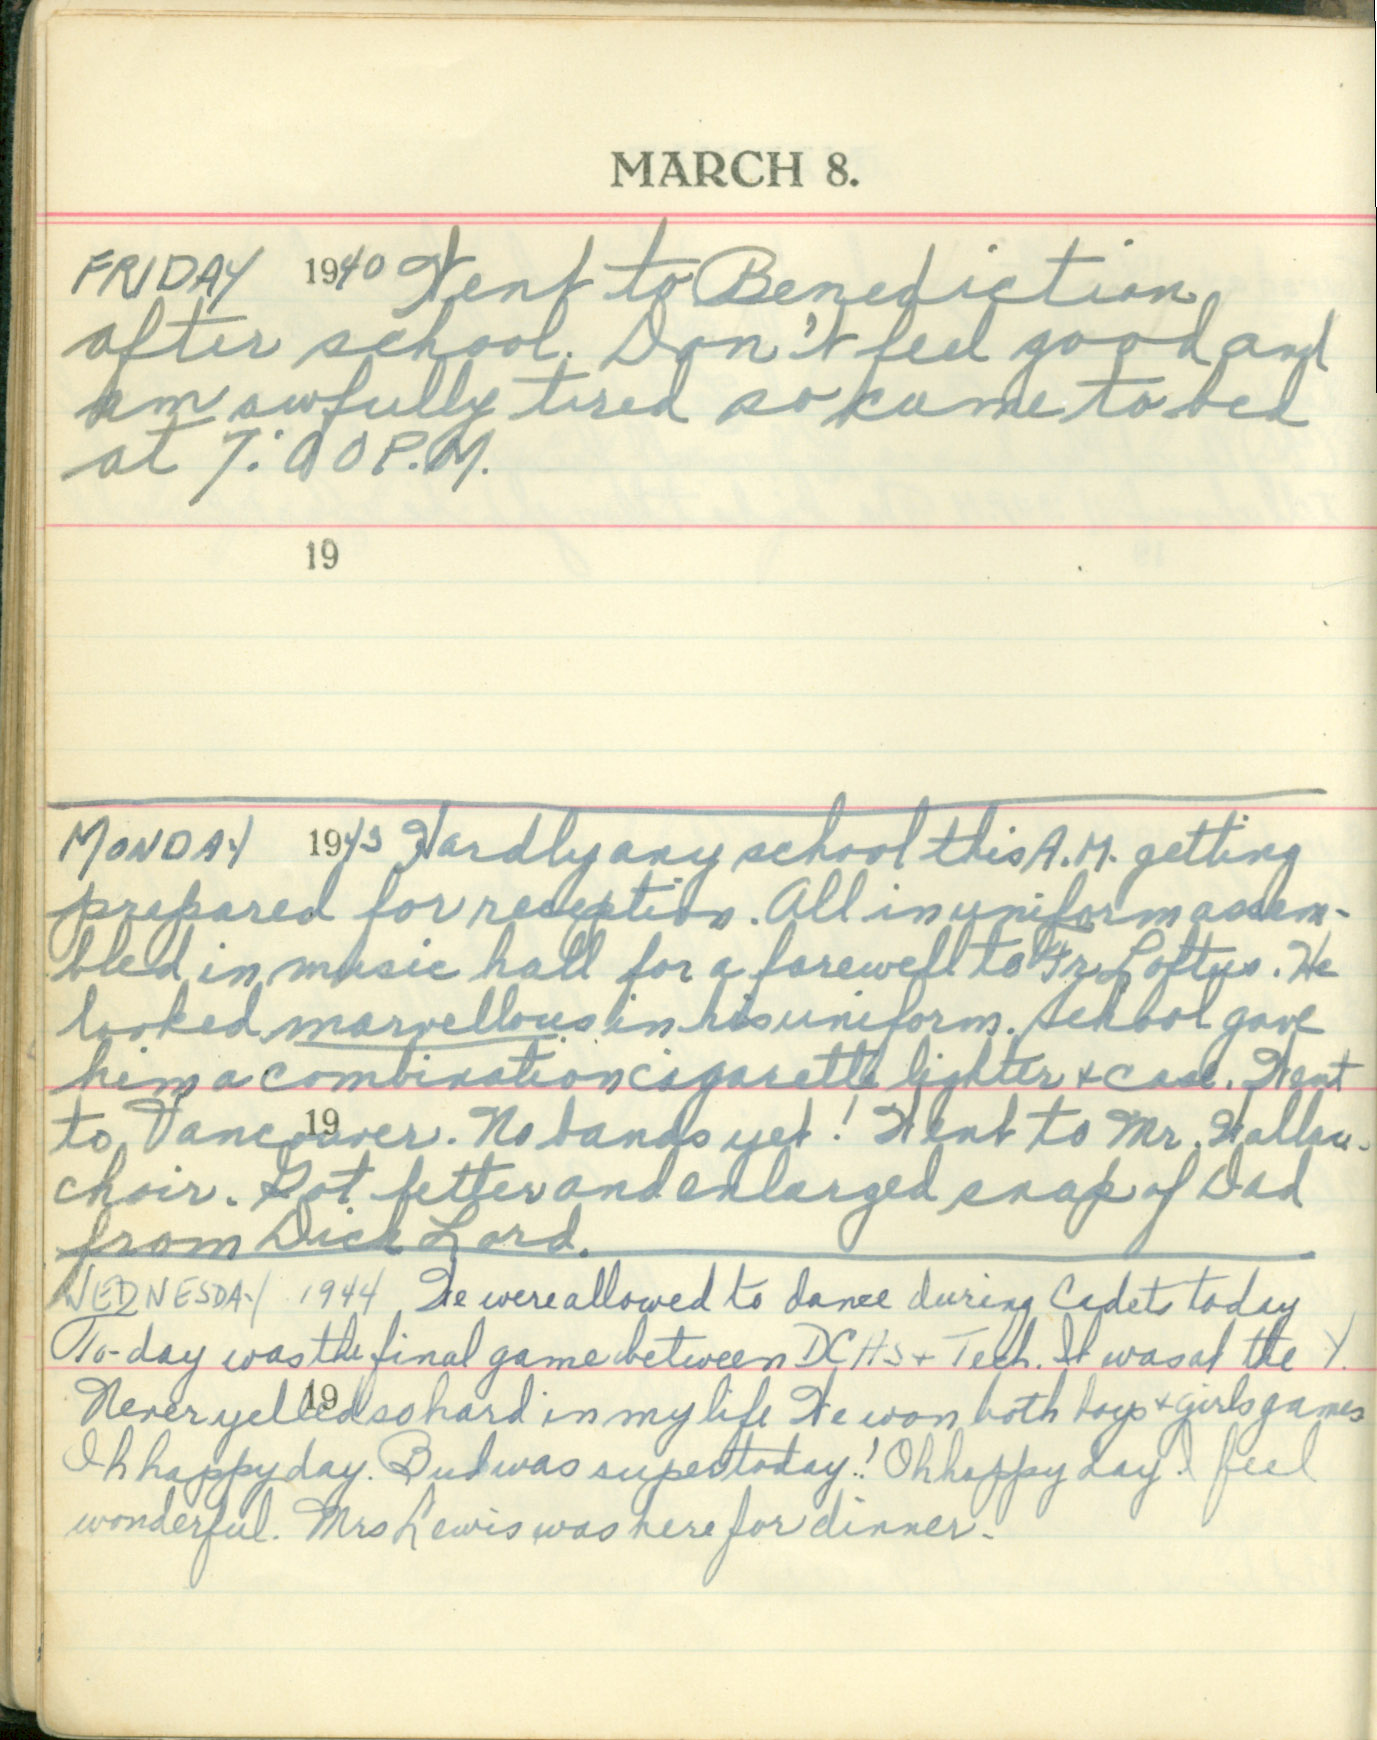 MARCH 8.
FRIDAY 1940 Went to Benediction
after school. Don't feel good and
am awfully tired so came to bed
at 7:00 P.M.
19
MONDAY 1943 Hardly any school this A.M. getting
prepared for reception. All in uniform assem-
bled in music hall for a farewell to Fr. Loftus. He
looked marvellous in his uniform. School gave
him a combination cigarette lighter & case. Went
to Vancouver. No bands yet! Went to Mr.
19
choir. Got letter and enlarged snap of Dad
from Dick Lord.
WEDNESDAY 1944 We were allowed to dance during Cadets today
To-day was the final game between DCHS & Tech. It was at the Y.
Never yelled so hard in my life We won both boys & girls games
19
Oh happy day. Bud was super today!! Oh happy day I feel
wonderful. Mrs Lewis was here for dinner.